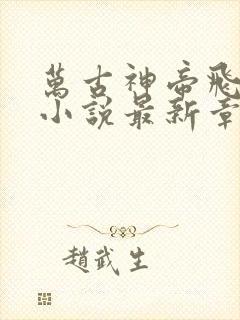 萬古神帝飛
小說最新章
趙武生